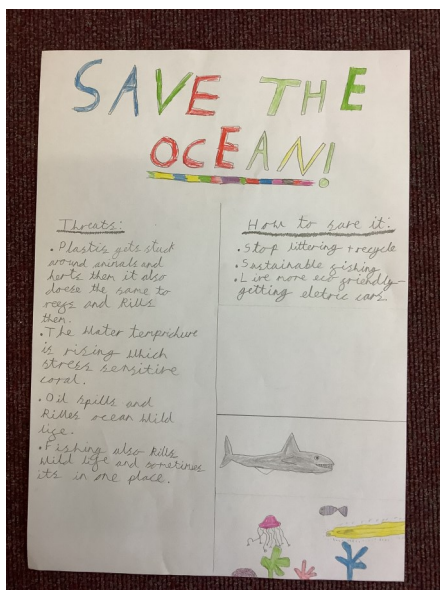 SAVE THE
OCEAN!
Threats:
• Plastic gets stuck
around animals and
herts them it also
doese the same to
reefs and kills
them.
• The Water temprichure
is rising which
stress sensitive
coral.
• Oil spills and
killes ocean wild
life.
• Fishing also kills
wild life and sometimes
its in one place.
How to save it:
• Stop littering + recycle
• Sustainable fishing
• Live more eco friendly-
getting eletric cars